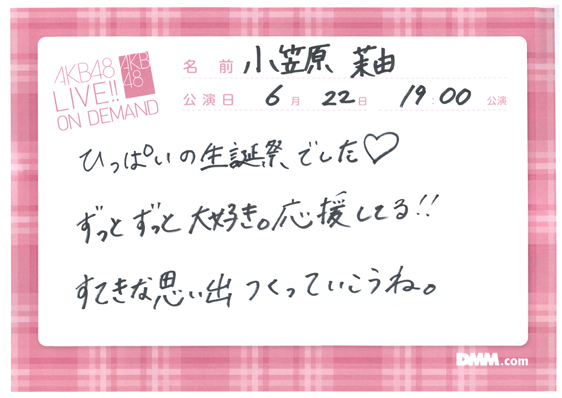 AKB48
LIVE!!
ON DEMAND
AKB
48
名 前 小笠原 茉由
公演日 6月 22日 19:00 公演
ひっぱいの生誕祭でした♡
ずっとずっと大好き。応援してる!!
すてきな思い出つくっていこうね。
DMM.com